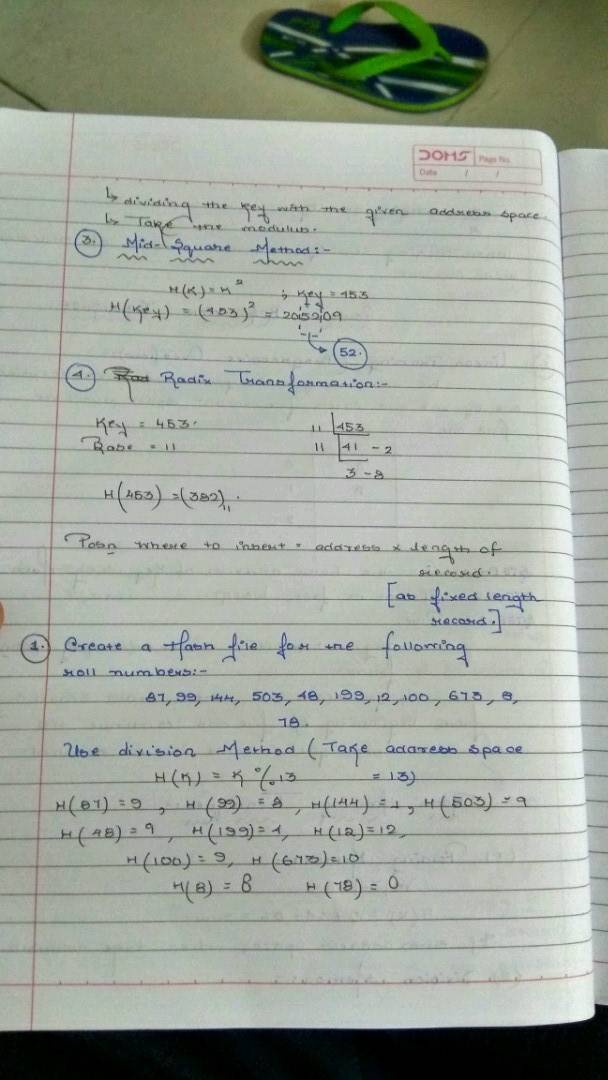 DOMS Page No.
Date / /
↳ dividing the key with the given address space.
↳ Take the modulus.
3. Mid-Square Method:-
H(K) = K² ; Key = 453
H(Key) = (453)² = 205209
52.
4. Radix Transformation:-
Key = 453. 11 453
Base = 11 11 41 - 2
3 - 8
H(453) = (382)₁₁.
Posn where to insert = address × length of
record.
[as fixed length
record.]
1. Create a Hash file for the following
roll numbers:-
87, 99, 144, 503, 48, 199, 12, 100, 673, 8,
78.
Use division Method (Take address space
H(K) = K % 13 = 13)
H(87) = 9, H(99) = 8, H(144) = 1, H(503) = 9
H(48) = 9, H(199) = 4, H(12) = 12,
H(100) = 9, H(673) = 10
H(8) = 8 H(78) = 0